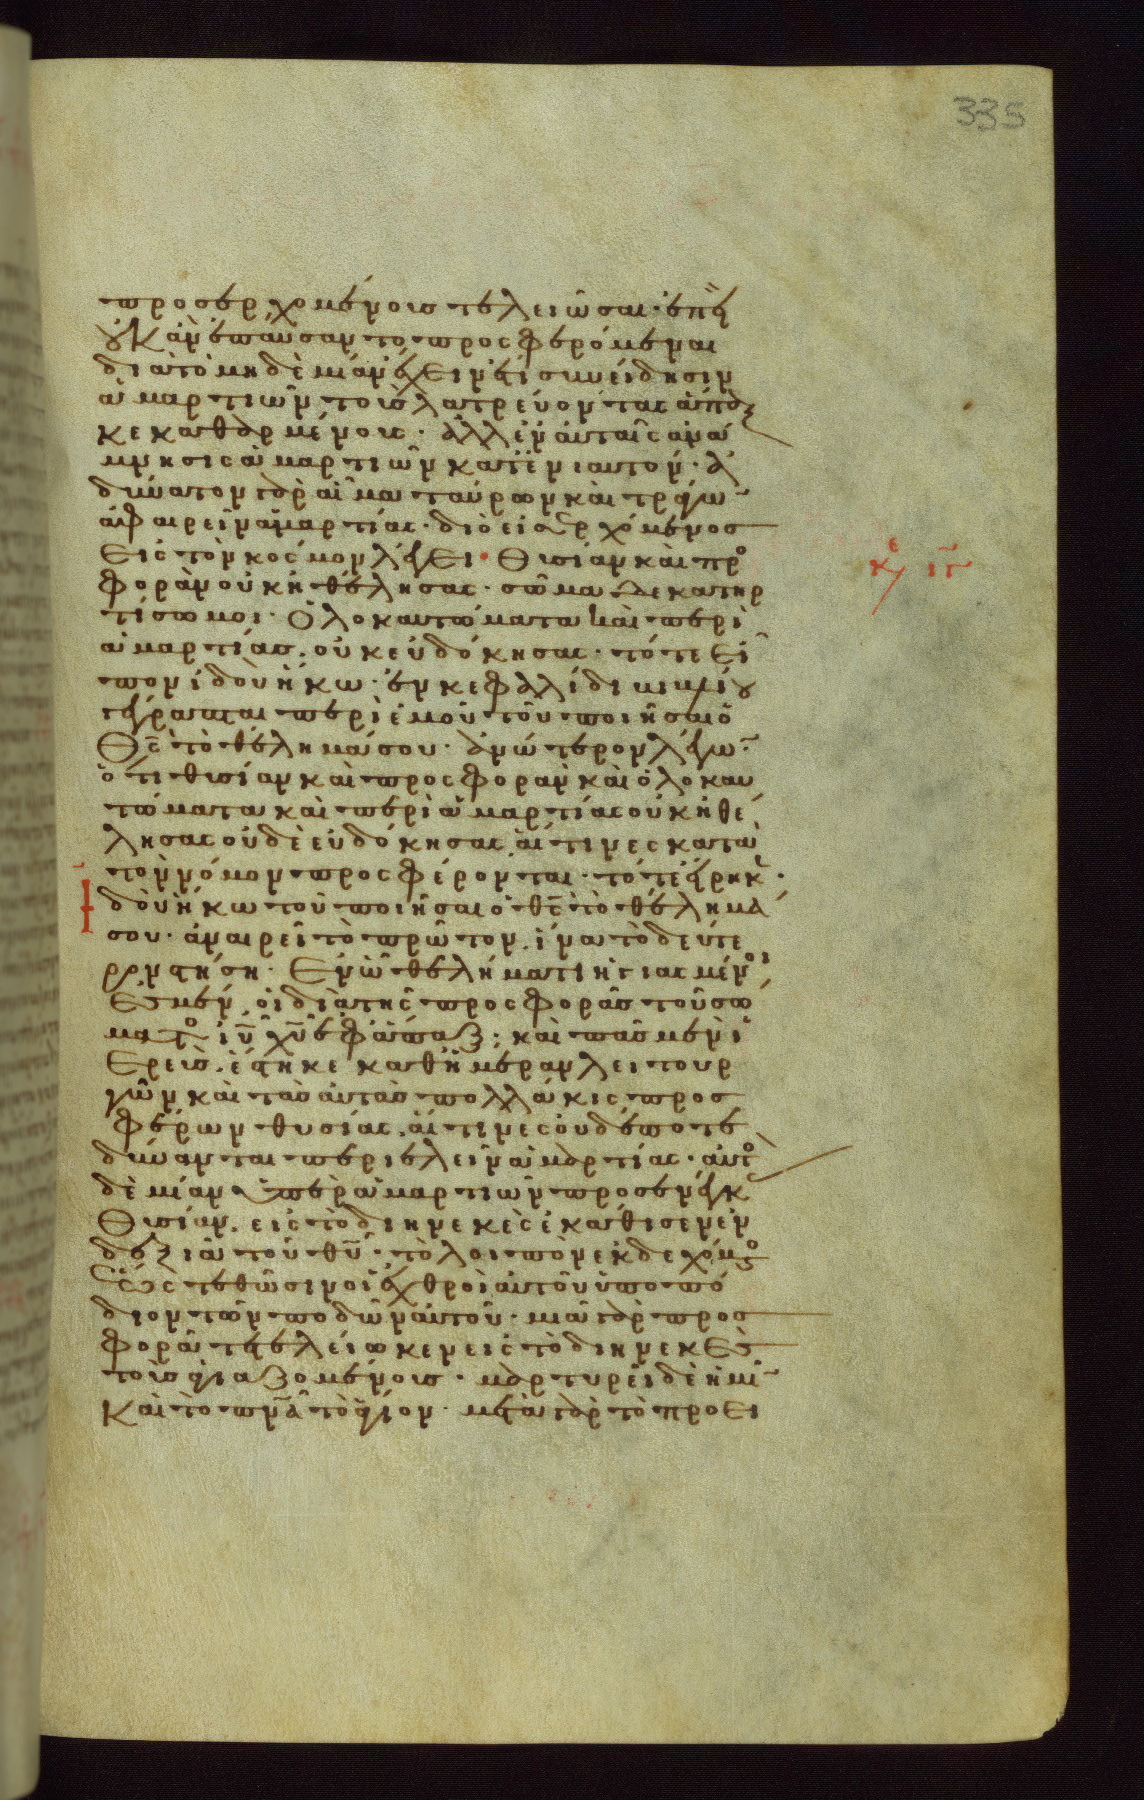 335
προσερχομένοις τελειῶσαι· ἐπεὶ
οὐκ ἂν ἐπαύσαντο προσφερόμεναι
διὰ τὸ μηδεμίαν ἔχειν ἔτι συνείδησιν
ἁμαρτιῶν τοὺς λατρεύοντας ἅπαξ
κεκαθαρμένους· ἀλλ' ἐν αὐταῖς ἀνά
μνησις ἁμαρτιῶν κατ' ἐνιαυτόν· ἀ
δύνατον γὰρ αἷμα ταύρων καὶ τράγων
ἀφαιρεῖν ἁμαρτίας· διὸ εἰσερχόμενος
εἰς τὸν κόσμον λέγει· Θυσίαν καὶ προσ
φορὰν οὐκ ἠθέλησας· σῶμα δὲ κατηρ
τίσω μοι· Ὁλοκαυτώματα καὶ περὶ
ἁμαρτίας οὐκ εὐδόκησας· τότε εἶ
πον ἰδοὺ ἥκω· ἐν κεφαλίδι βιβλίου
γέγραπται περὶ ἐμοῦ τοῦ ποιῆσαι ὁ
Θς τὸ θέλημά σου· ἀνώτερον λέγων
ὅτι θυσίαν καὶ προσφορὰν καὶ ὁλοκαυ
τώματα καὶ περὶ ἁμαρτίας οὐκ ἠθέ
λησας οὐδὲ εὐδόκησας αἵτινες κατὰ
τὸν νόμον προσφέρονται· τότε εἴρηκεν·
Ἰδοὺ ἥκω τοῦ ποιῆσαι ὁ θς τὸ θέλημά
σου· ἀναιρεῖ τὸ πρῶτον ἵνα τὸ δεύτε
ρον στήσῃ· Ἐν ᾧ θελήματι ἡγιασμένοι
ἐσμέν οἱ διὰ τῆς προσφορᾶς τοῦ σώ
ματος ιυ χυ ἐφάπαξ· καὶ πᾶς μὲν ἱ
ερεὺς ἕστηκε καθ' ἡμέραν λειτουρ
γῶν καὶ τὰς αὐτὰς πολλάκις προσ
φέρων θυσίας αἵτινες οὐδέποτε
δύνανται περιελεῖν ἁμαρτίας· αὐτὸς
δὲ μίαν ὑπὲρ ἁμαρτιῶν προσενέγκας
Θυσίαν εἰς τὸ διηνεκὲς ἐκάθισεν ἐν
δεξιᾷ τοῦ θυ· τὸ λοιπὸν ἐκδεχόμενος
ἕως τεθῶσιν οἱ ἐχθροὶ αὐτοῦ ὑποπό
διον τῶν ποδῶν αὐτοῦ· μιᾷ γὰρ προσ
φορᾷ τετελείωκεν εἰς τὸ διηνεκὲς
τοὺς ἁγιαζομένους· μαρτυρεῖ δὲ ἡμῖν
καὶ τὸ πνα τὸ ἅγιον· μετὰ γὰρ τὸ προει